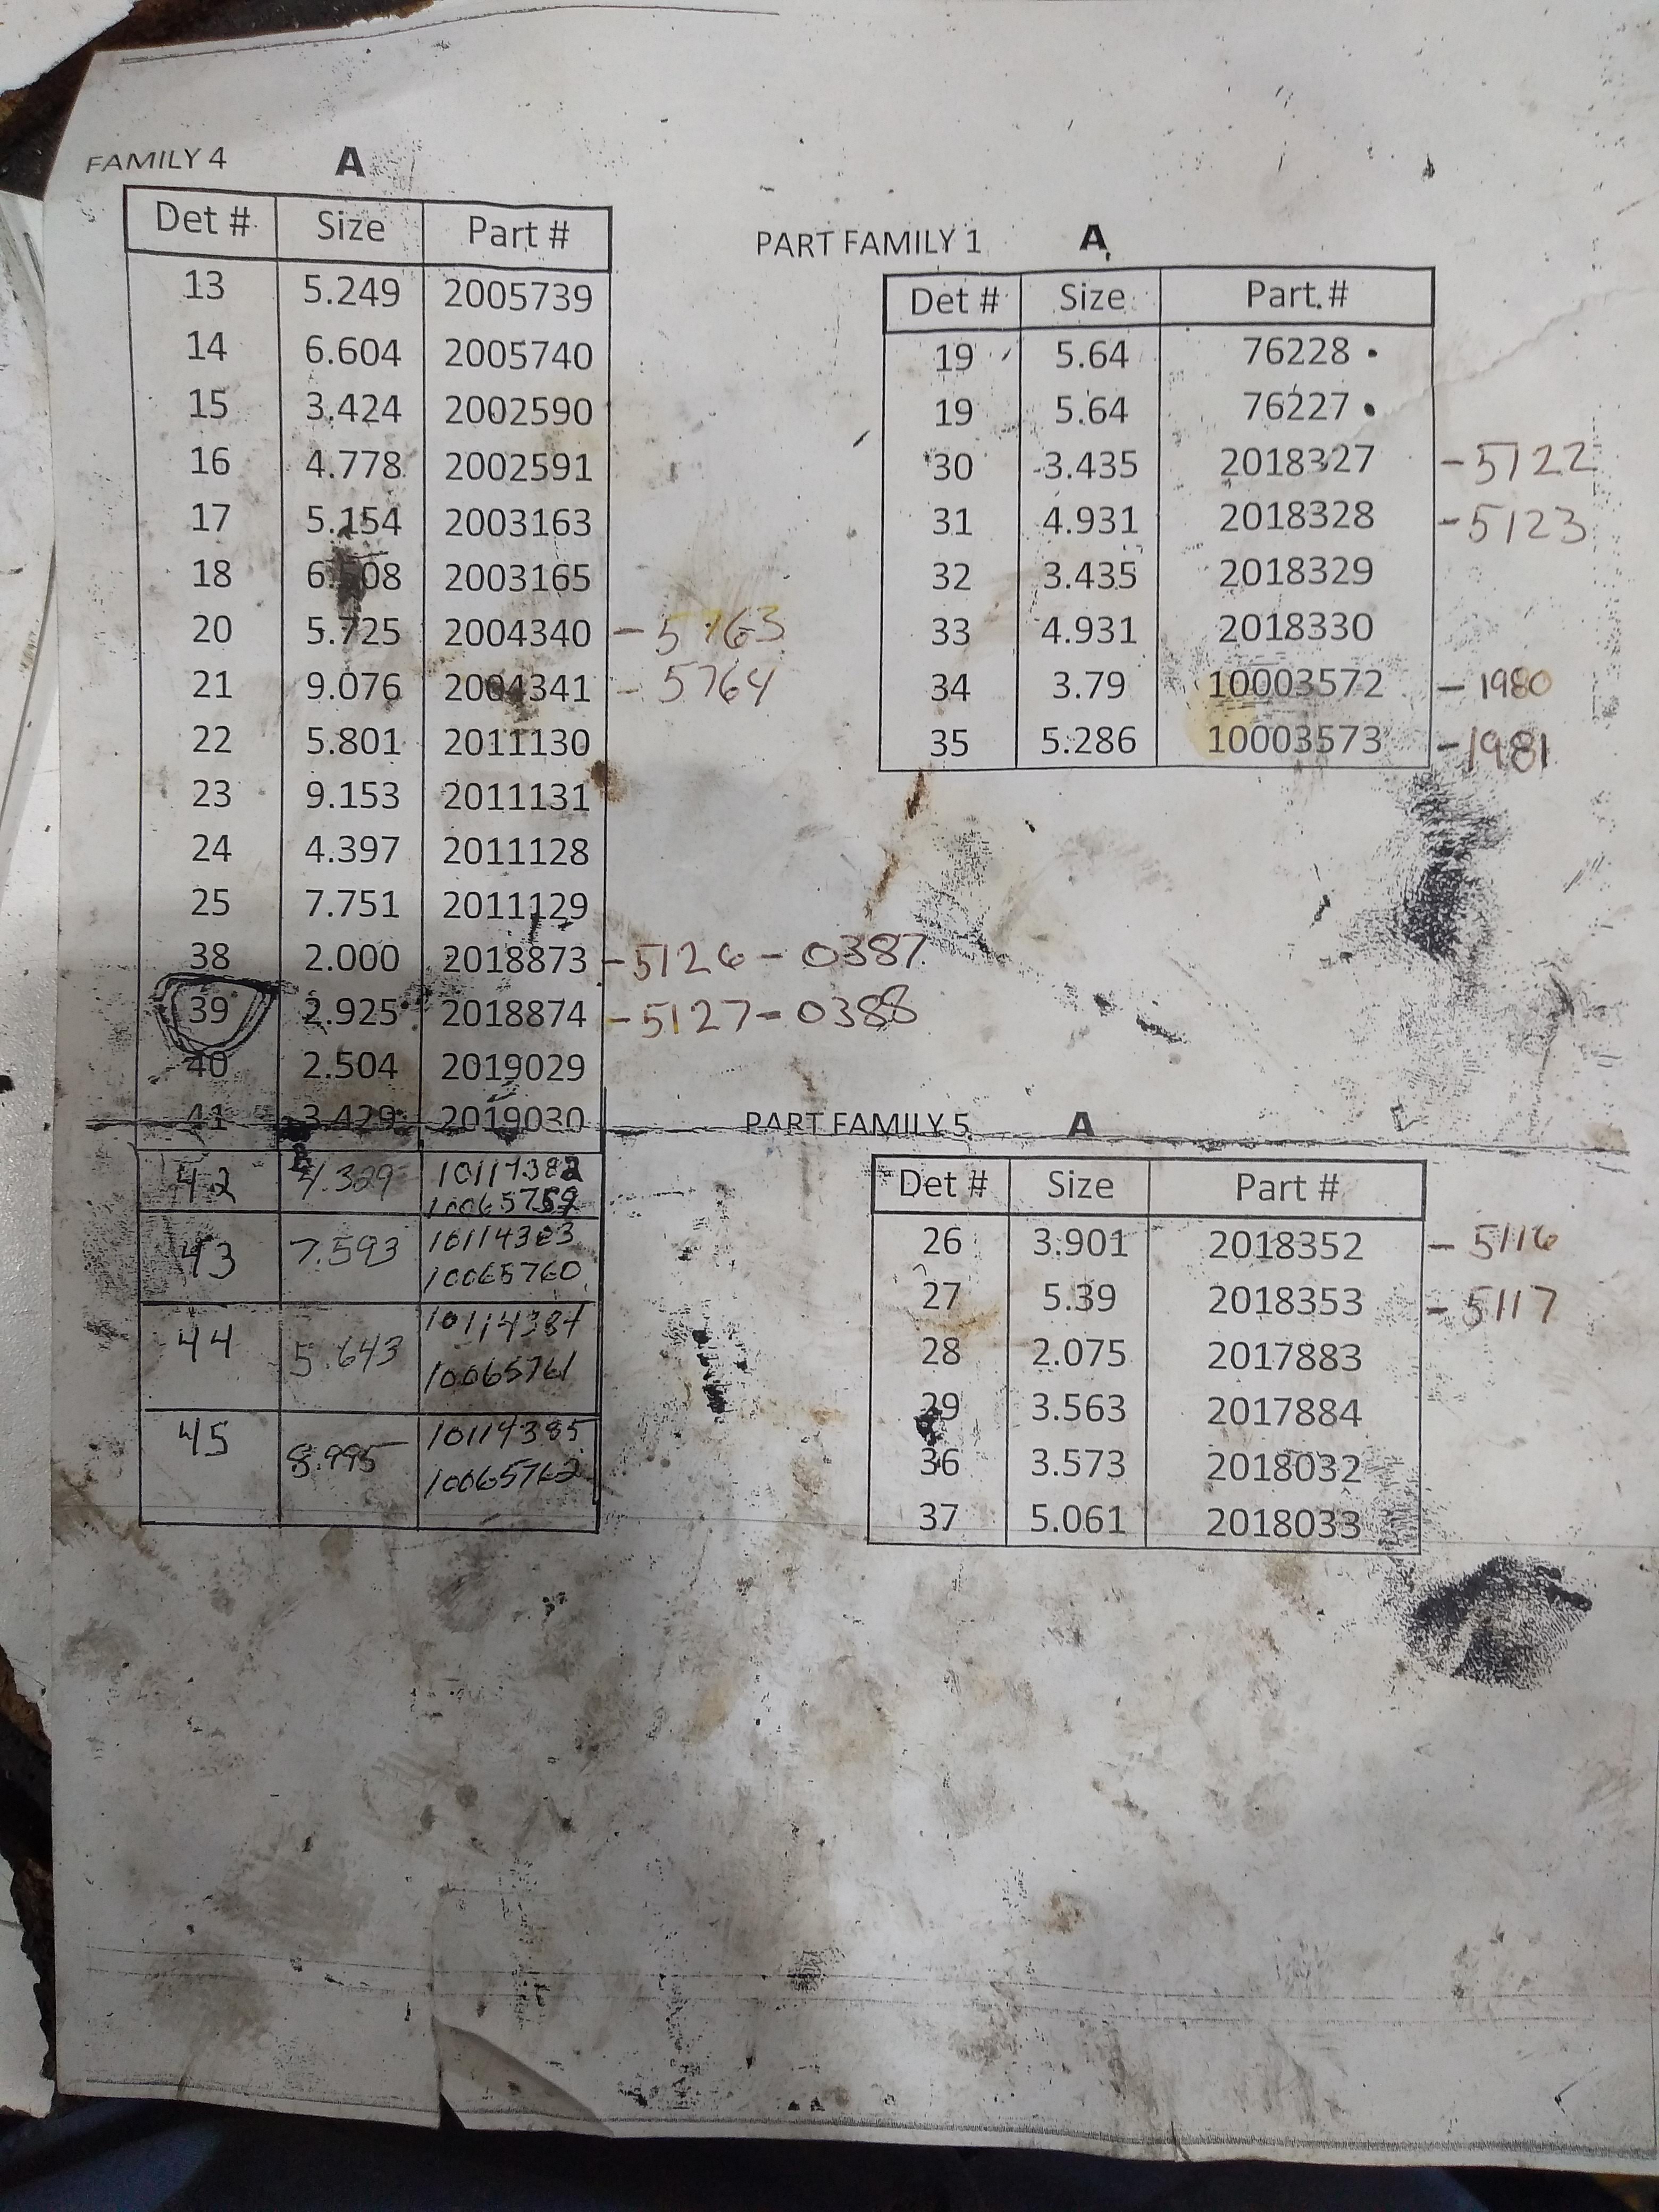 FAMILY 4 A
Det # Size Part #
13 5.249 2005739
14 6.604 2005740
15 3.424 2002590
16 4.778 2002591
17 5.154 2003163
18 2003165
20 5.725 2004340 - 5763
21 9.076 2004341 - 5764
22 5.801 2011130
23 9.153 2011131
24 4.397 2011128
25 7.751 2011129
38 2.000 2018873 - 5126 - 0387
39 2.925 2018874 - 5127 - 0388
40 2.504 2019029
41 3.429 2019030
42
43 7.593
10065760
44 5.643 10114384
10065761
45 8.995 10114385
10065762
PART FAMILY 1 A
Det # Size Part #
19 5.64 76228
19 5.64 76227
30 3.435 2018327 - 5122
31 4.931 2018328 - 5123
32 3.435 2018329
33 4.931 2018330
34 3.79 10003572 - 1980
35 5.286 10003573 - 1981
PART FAMILY 5 A
Det # Size Part #
26 3.901 2018352 - 5116
27 5.39 2018353 - 5117
28 2.075 2017883
29 3.563 2017884
36 3.573 2018032
37 5.061 2018033